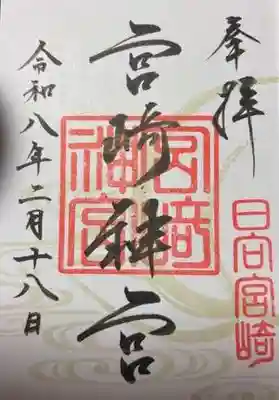 奉拝
日向宮崎
宮崎神宮
宮崎神宮
令和八年二月十八日